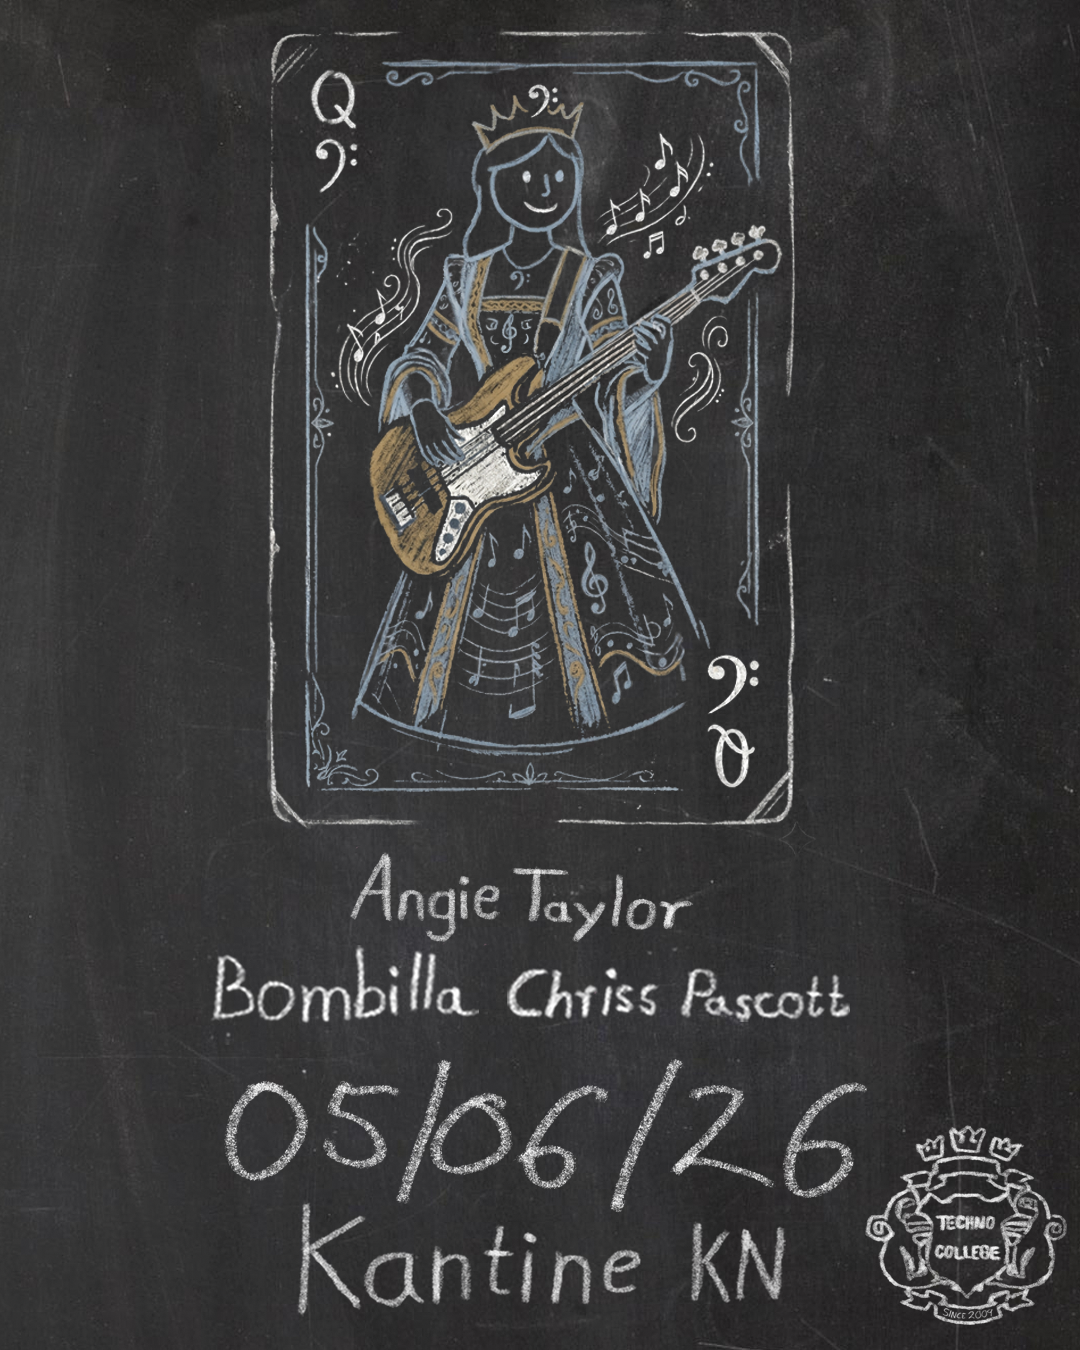 Q
Angie Taylor
Bombilla Chriss Pascott
05/06/26
Kantine KN
TECHNO
COLLEGE
SINCE 2009
Q